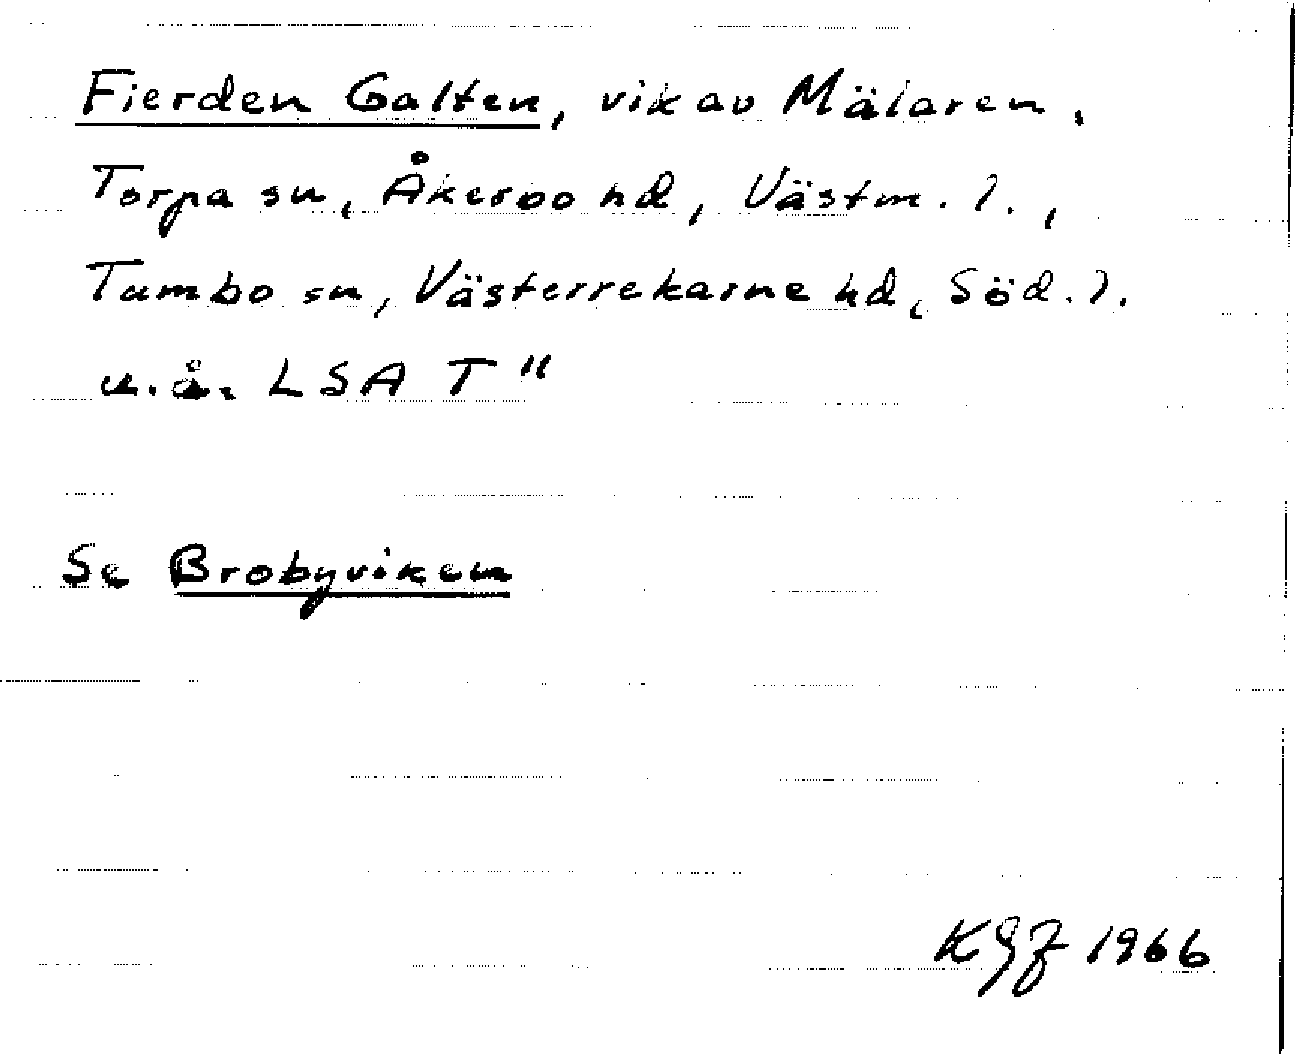 Fierden Galten, vik av Mälaren.
Torpa sn, Åkerbo hd, Västm. l.,
Tumbo sn, Västerrekarne hd, Söd. l.
u.å. LSA T"
Se Brobyviken
KGF 1966